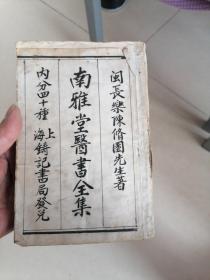 閩長樂陳脩園先生著
南雅堂醫書全集
內分四十種
上海鑄記書局發兌